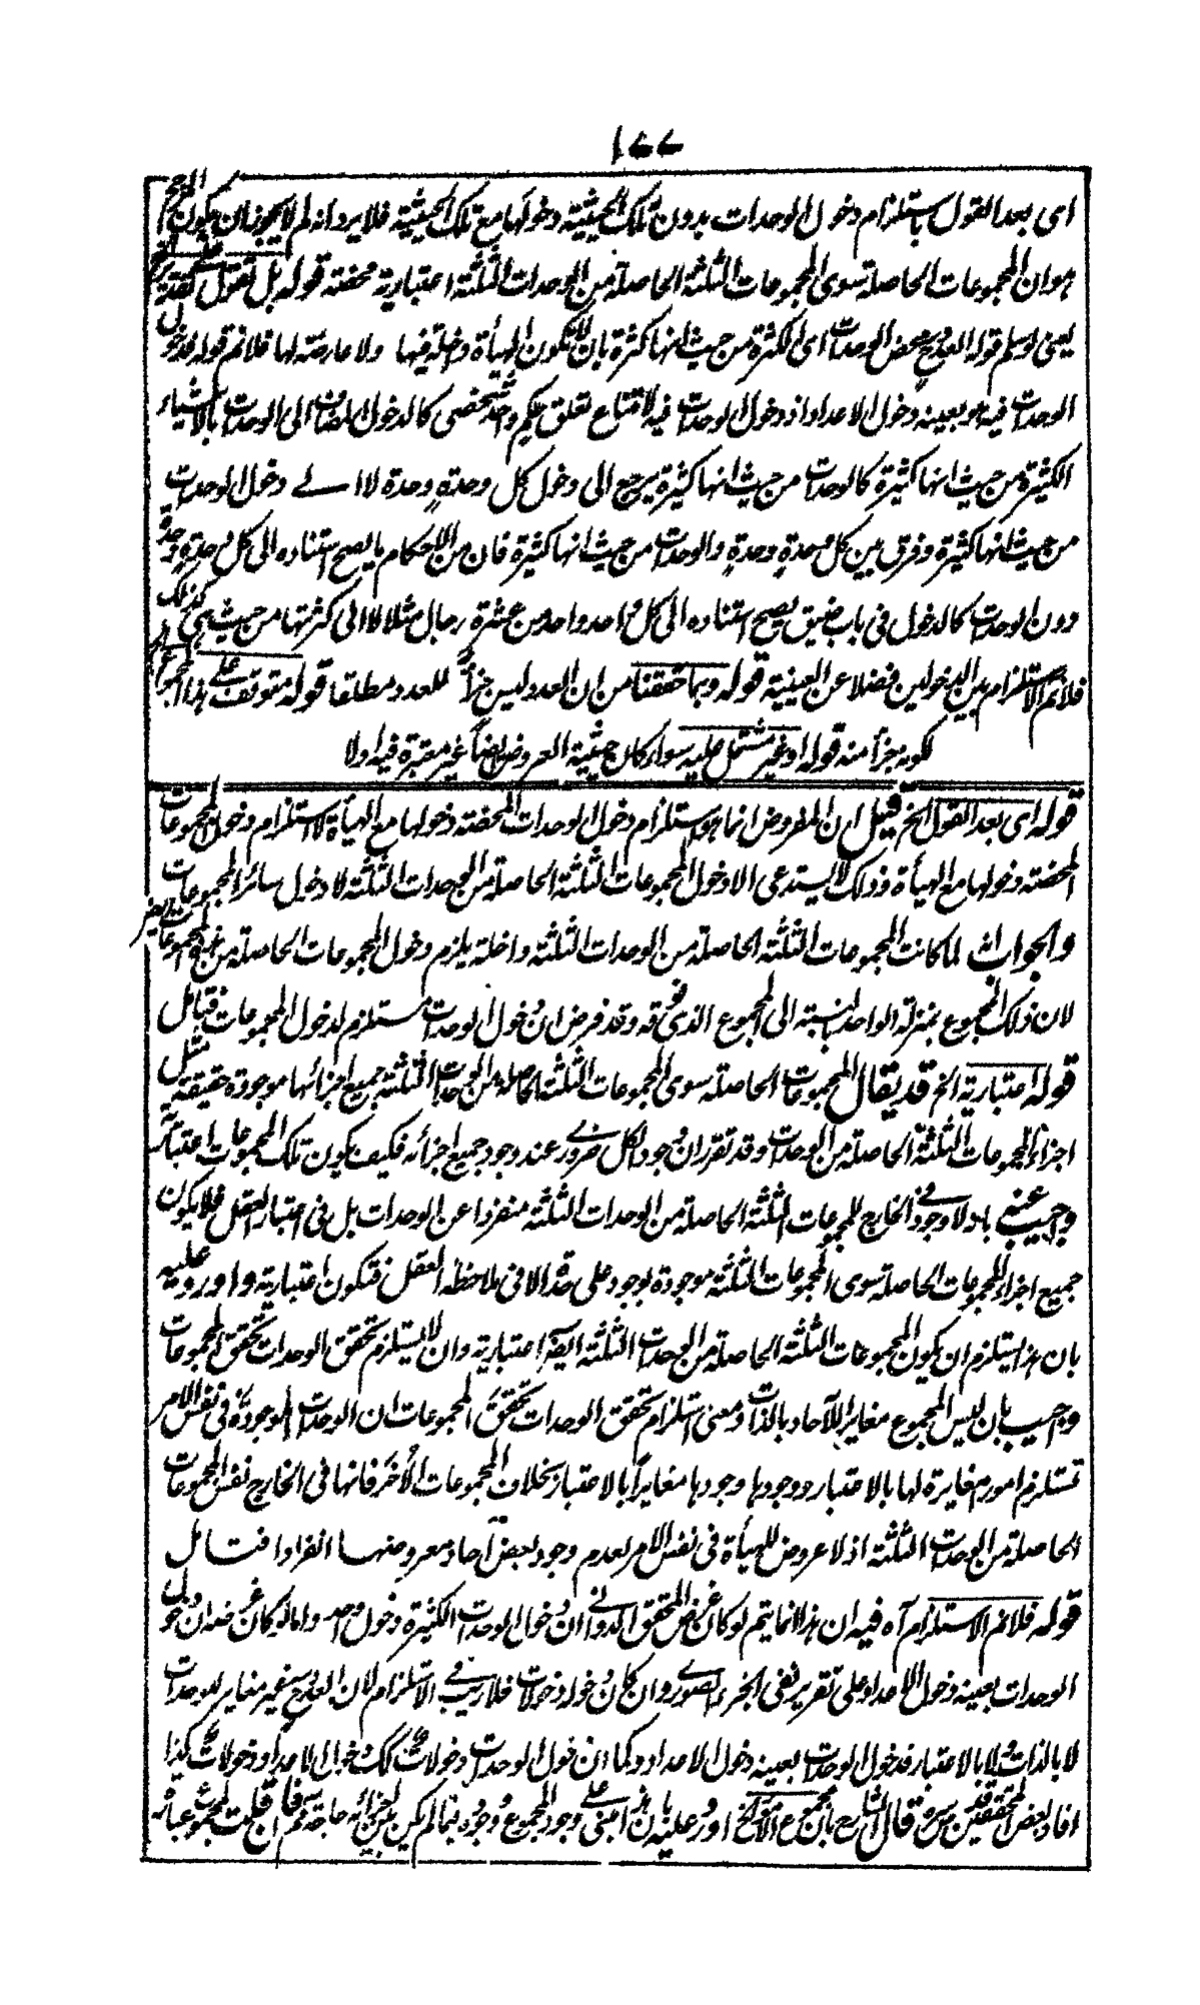 ١٧٧
اى بعد القول باستلزام دخول الوحدات بدون تلك الحيثية دخولها مع تلك الحيثية فلا يرد انه لم لا يجوز ان يكون المرجح
هو ان المجموعات الحاصلة سوى المجموعات الثلثة الحاصلة من الوحدات الثلثة اعتبارية محضة قوله بل نقول على تقدير
يعنى لو سلم قوله العدد محض الوحدات اى الكثرة من حيث انها كثرة بان لا تكون الهيأة داخلة فيها ولا عارضة لها فلا نم قوله فدخول
الوحدات فيه هو بعينه دخول الاعداد اذ دخول الوحدات فيه لامتناع تعلق حكم واحد شخصى كالدخول المضاف الى الوحدات بالاشياء
الكثيرة من حيث انها كثيرة كالوحدات من حيث انها كثيرة يرجع الى دخول كل وحدةٍ وحدة لا الى دخول الوحدات
من حيث انها كثيرة وفرق بين كل وحدةٍ وحدةٍ والوحدات من حيث انها كثيرة فان من الاحكام ما يصح استناده الى كل وحدةٍ وحدة
دون الوحدات كالدخول فى باب ضيق يصح استناده الى كل واحد واحد من عشرة رجال مثلا لا الى كثرتها من حيث هى كذلك
فلا نم الاستلزام بين الدخولين فضلا عن العينية قوله وبما حققنا من ان العدد ليس جزأً للعدد مطلقا قوله متوقف على هذا المجموع
لكونه جزأ منه قوله او غير مشتمل عليه سواء كان حيثية العروض ايضاً غير معتبرة فيه اولا
قوله اى بعد القول الخ قيل ان المفروض انما هو استلزام دخول الوحدات المحضة دخولها مع الهيأة لا استلزام دخول المجموعات
المحضة دخولها مع الهيأة وذلك لا يستدعى الا دخول المجموعات الثلثة الحاصلة من الوحدات الثلثة لا دخول سائر المجموعات
والجواب انه لما كانت المجموعات الثلثة الحاصلة من الوحدات الثلثة داخلة يلزم دخول المجموعات الحاصلة من المجموعات
لان ذلك المجموع بمنزلة الواحد بالنسبة الى المجموع الذى فوقه وقد فرض ان دخول الوحدات مستلزم لدخول المجموعات فتأمل
قوله اعتبارية الخ قد يقال المجموعات الحاصلة سوى المجموعات الثلثة الحاصلة من الوحدات الثلثة جميع اجزائها موجودة حقيقة مثل
اجزاء المجموعات الثلثة الحاصلة من الوحدات وقد تقرر ان وجود الكل ضرورى عند وجود جميع اجزائه فكيف يكون تلك المجموعات اعتبارية
واجيب عنه بانه لا وجود فى الخارج للمجموعات الثلثة الحاصلة من الوحدات الثلثة منفردا عن الوحدات بل فى اعتبار العقل فلا يكون
جميع اجزاء المجموعات الحاصلة سوى المجموعات الثلثة موجودة بوجود على حدة الا فى ملاحظة العقل فتكون اعتبارية واورد عليه
بان هذا يستلزم ان يكون المجموعات الثلثة الحاصلة من الوحدات الثلثة ايضاً اعتبارية وان لا يستلزم تحقق الوحدات تحقق المجموعات
واجيب بان ليس المجموع مغايرا للآحاد بالذات ومعنى استلزام تحقق الوحدات تحقق المجموعات ان الوحدات الموجودة فى نفس الامر
تستلزم امور مغايرة لها بالاعتبار ووجودها وجودها مغايراً بالاعتبار بخلاف المجموعات الأُخر فانها فى الخارج نفس المجموعات
الحاصلة من الوحدات الثلثة اذ لا عروض للهيأة فى نفس الامر لعدم وجود بعض آحاد معروضها انفرادا فتأمل
قوله فلا نم الاستلزام آه فيه ان هذا انما يتم لو كان غرض المحقق الدوانى ان دخول الوحدات الكثيرة دخول واحد واما لو كان غرضه ان دخول
الوحدات بعينه دخول الاعداد على تقرير نفى الجزء الصورى وان كان دخوله دخولات فلا ريب فى الاستلزام لان العدد ح غير مغاير للوحدات
لا بالذات ولا بالاعتبار فدخول الوحدات بعينه دخول الاعداد وكما ان دخول الوحدات دخولات كذلك دخول الاعداد دخولات كذا
افاد بعض المحققين قدس سره قال الشارح بان مجموع اورد عليه بان هذا مبنى على وجود المجموع